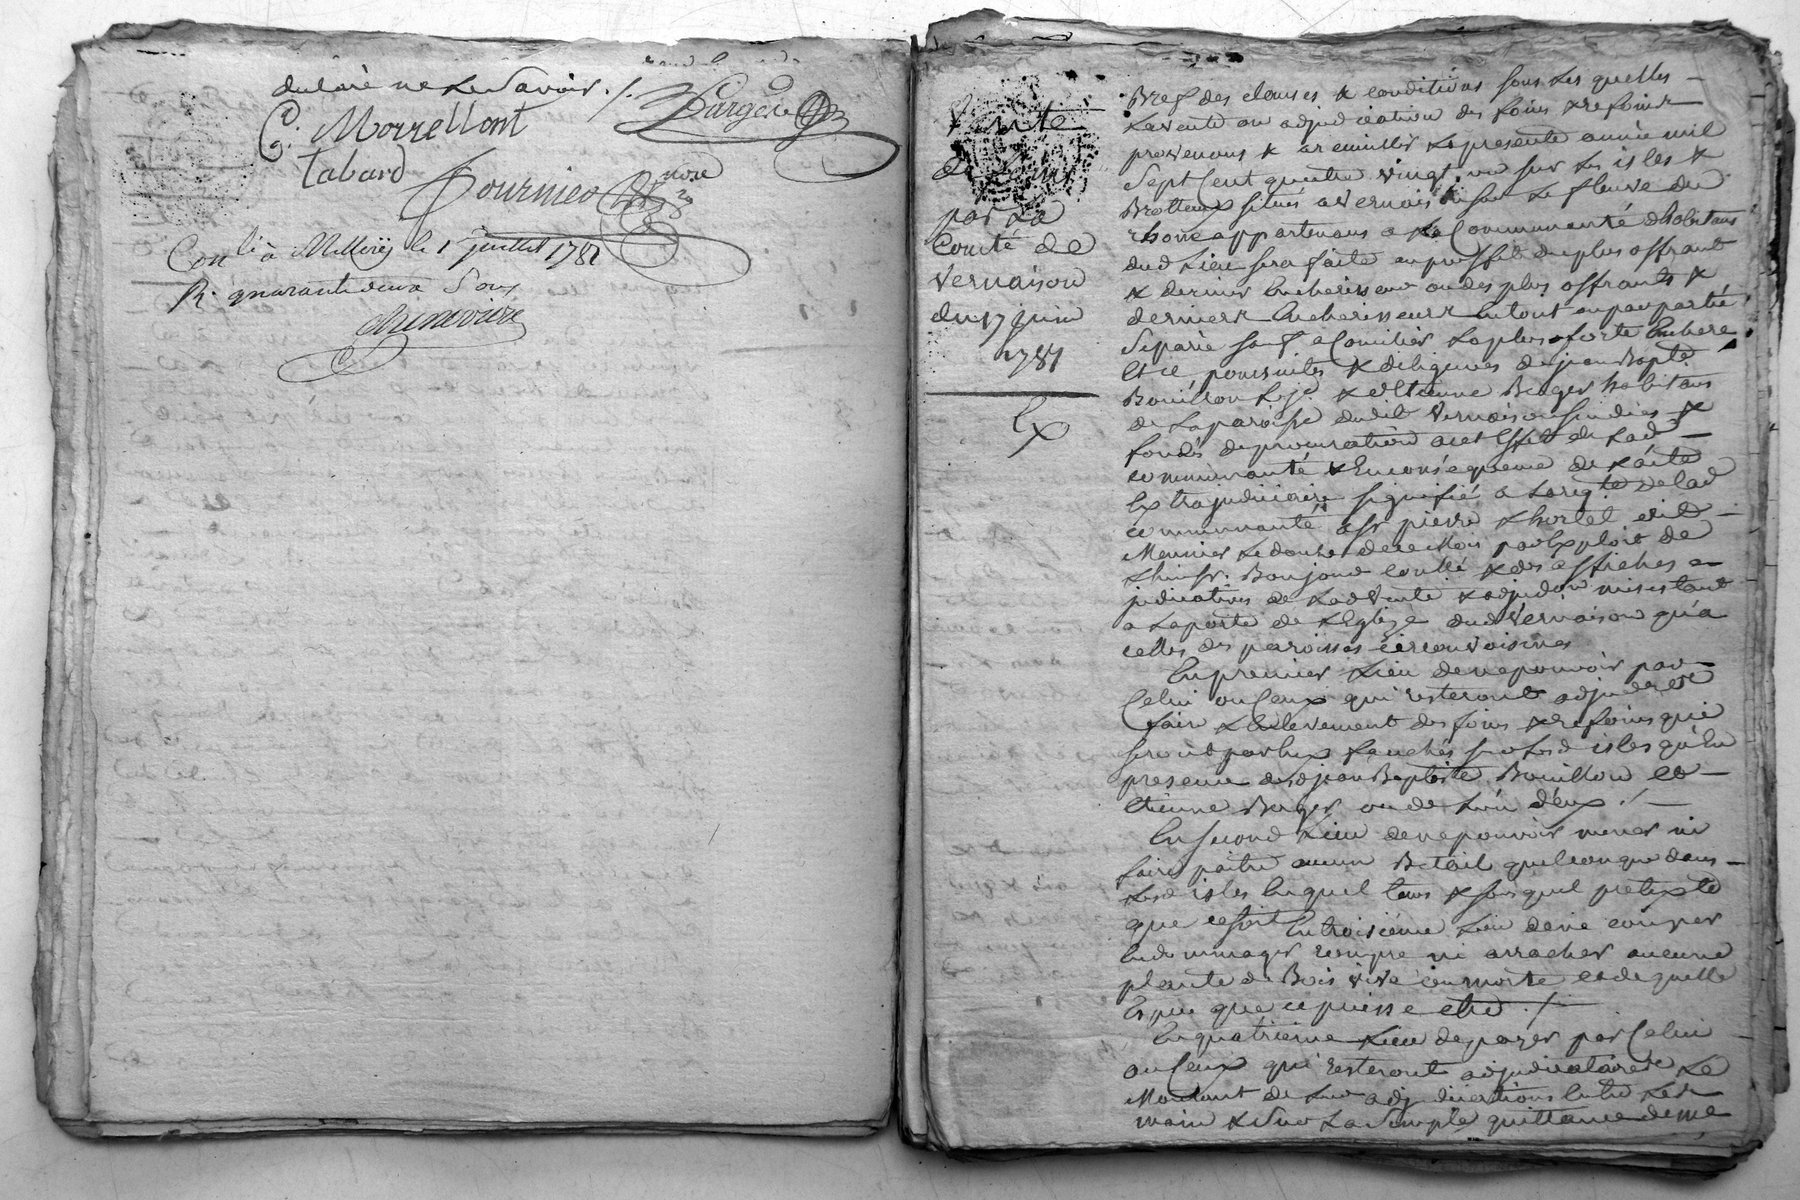 declaré ne le Savoir ./.
Dargere
C. Morrellont
g.
tabard
Fournier
nore
Con.lé à Millery le 1 juillet 1781
R. quarante deux Sous
Vente
de foins
par La
Comté de
Vernaison
du 17 juin
1781
Ex
Bref des clauses & conditions sous Les quelles
La vente ou adjudication des foins & refoins
provenans & a recueillir La presente année mil
Sept Cent quatre vingt un sur Les isles &
Brotteaux situés a Vernaison sur Le fleuve du
rhone appartenans a La Communauté d'habitans
dud Lieu sera faite au proffit du plus offrant
& dernier Encherisseur ou des plus offrants &
derniers Encherisseurs En tout ou par partie
Separée sauf a Concilier La plus forte Enchere
Et ce poursuites & diligences de jean Bapte
Bouillon Lejе & d'Etienne Berger habitans
de La paroisse dudit Vernaison sindics &
fondés de procuration a cet Effet de Lad
communauté & En consequence de L'acte
Extrajudiciaire signifié a La reqte de lad
communauté a Sr pierre
Meunier Le douze de ce Mois par Exploit de
L'huissr. Bonjour Conllé & des affiches
judicatives de Lad Vente & adjudon mises tant
a La porte de L'Eglize dud Vernaison qu'a
celles des paroisses circonvoisines
En premier Lieu de ne pouvoir par
Celui ou Ceux qui resteront adjudres
faire L'Enlevement des foins & refoins qui
seront par Eux fauchés sur Lesd isles qu'En
presence desd jean Baptiste Bouillon et
Etienne Berger ou de L'un d'eux ./.
En second Lieu de ne pouvoir mener ni
faire paitre aucun Betail quelconque dans
Lesd isles En quel tems & sous quel pretexte
que ce soit En troisième Lieu de ne couper
Endommager rompre ni arracher aucune
plante de Bois vive ou morte et de quelle
Espece que ce puisse etre ./.
En quatrieme Lieu de payer par Celui
ou Ceux qui resteront adjudicataires Le
Montant de Leur adjudications Entre Les
main & Sur La Simple quittance de me